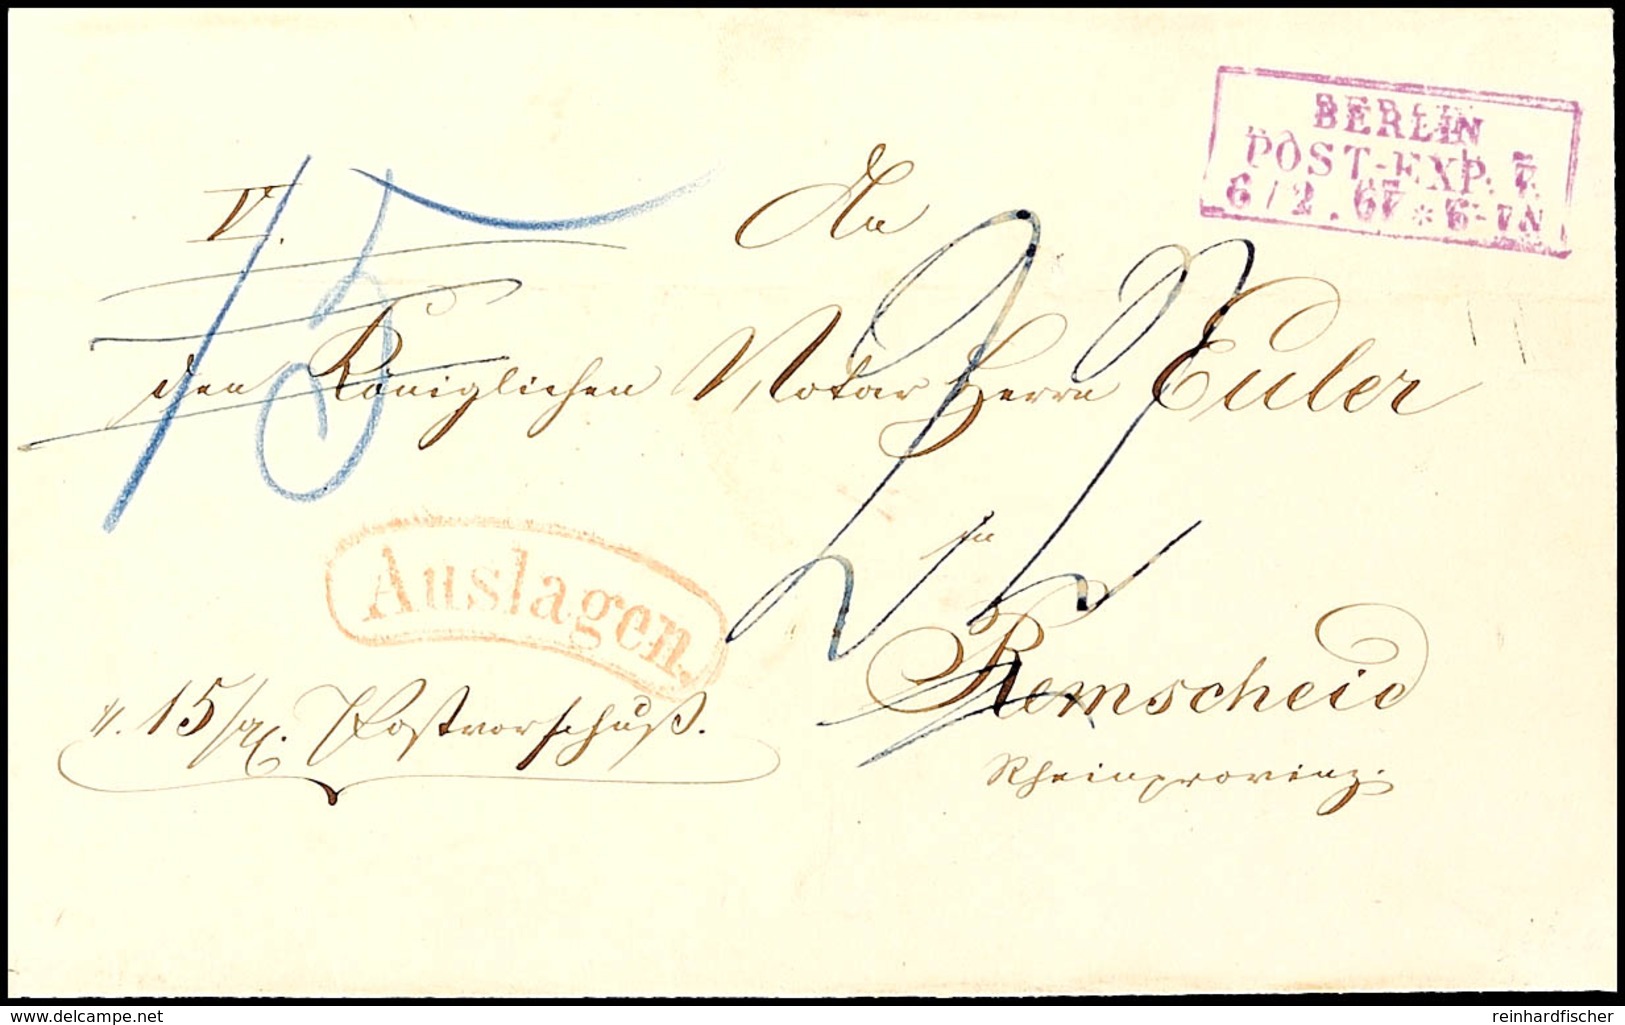 BERLIN
POST-EXP. 7.
6/2. 67 * 6-7N
V.
15
An
den Königlichen Notar Herrn Euler
in
Remscheid
Rheinprovinz.
Auslagen.
15 Sgr. Postvorschuß.
www.delcampe.net
reinhardfischer